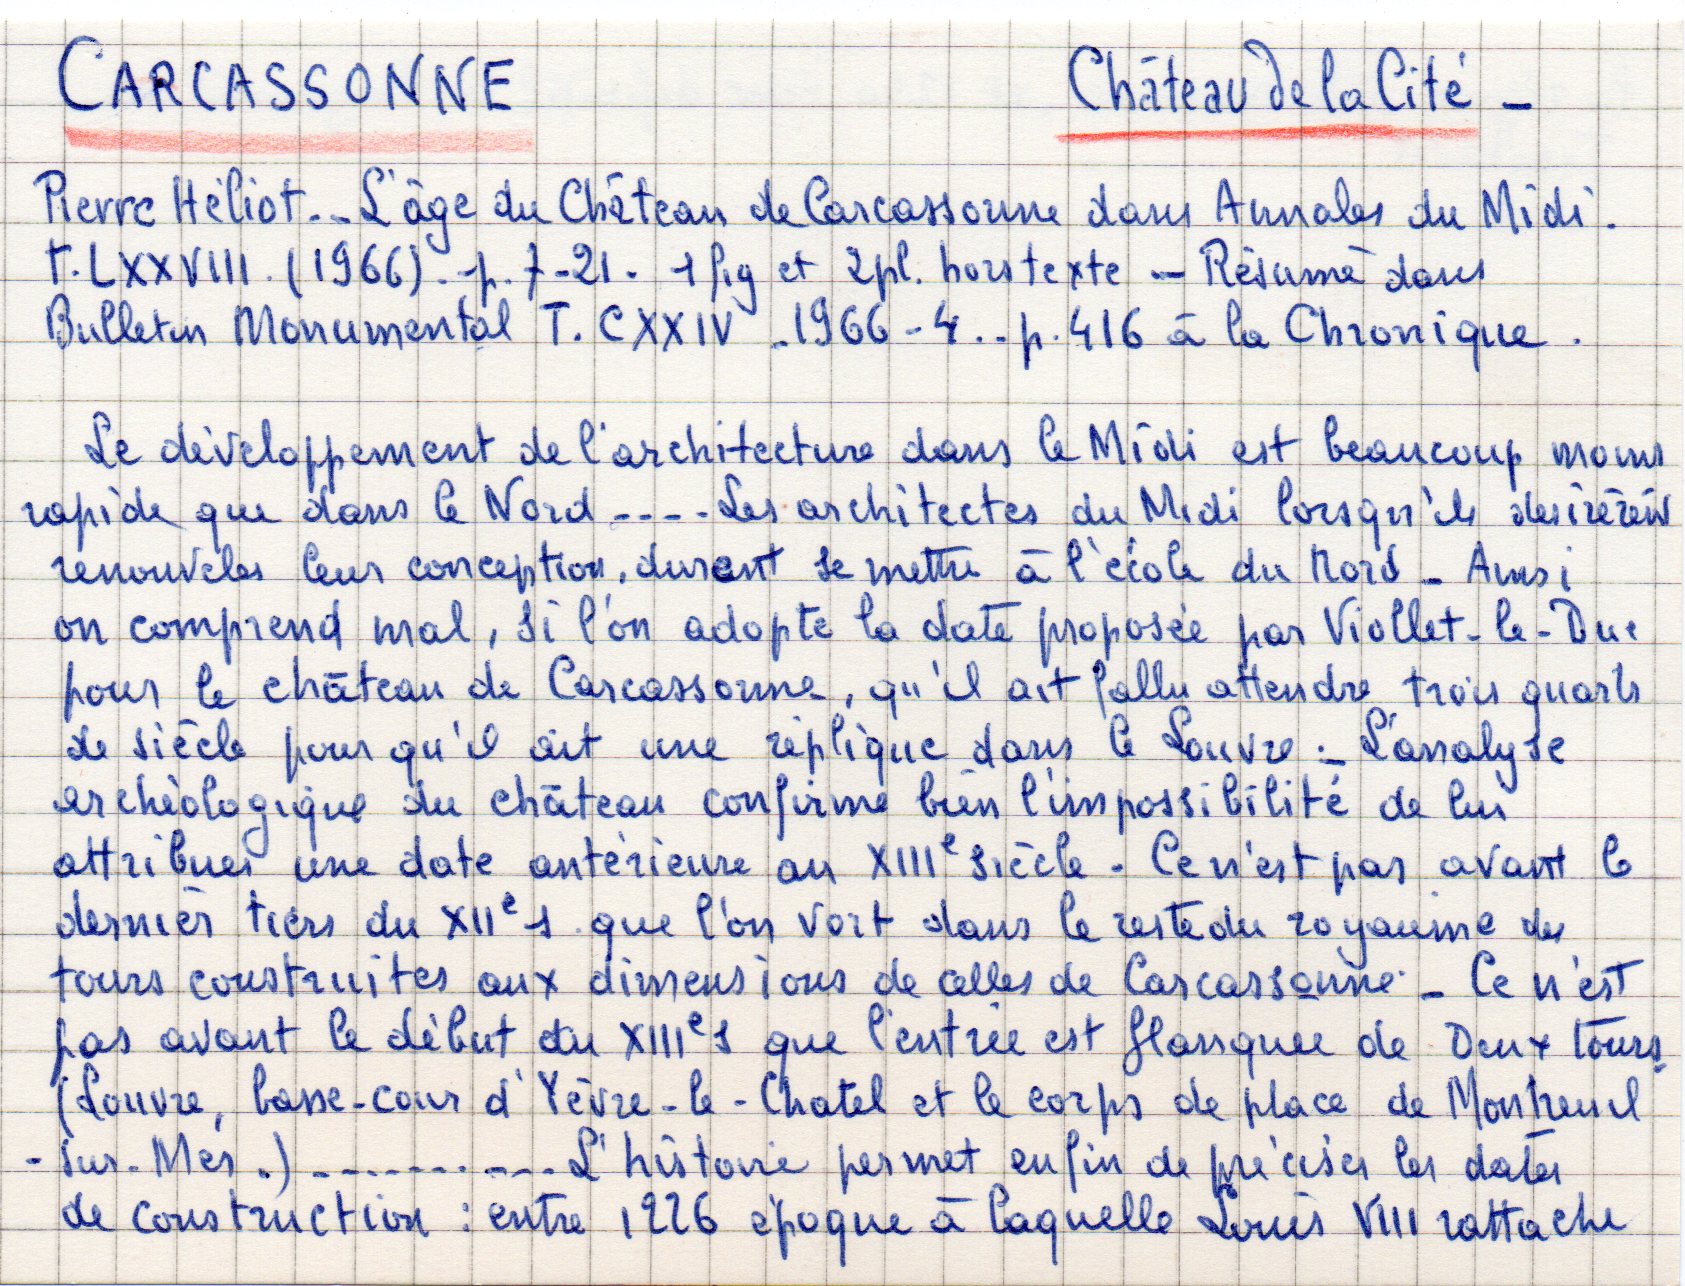 CARCASSONNE Château de la Cité -
Pierre Héliot.. L'âge du Château de Carcassonne dans Annales du Midi.
T. LXXVIII. (1966). p. 7-21. 1 fig et 2 pl. hors texte - Résumé dans
Bulletin Monumental T. CXXIV - 1966 - 4.. p. 416 à la Chronique.
Le développement de l'architecture dans le Midi est beaucoup moins
rapide que dans le Nord ---- Les architectes du Midi lorsqu'ils
renouveler leur conception, durent se mettre à l'école du Nord - Ainsi
on comprend mal, si l'on adopte la date proposée par Viollet-le-Duc
pour le château de Carcassonne, qu'il ait fallu attendre trois quarts
de siècle pour qu'il ait une réplique dans le Louvre : L'analyse
archéologique du château confirme bien l'impossibilité de lui
attribuer une date antérieure au XIIIe siècle - Ce n'est pas avant le
dernier tiers du XIIe s. que l'on voit dans le reste du royaume des
tours construites aux dimensions de celles de Carcassonne - Ce n'est
pas avant le début du XIIIe s que l'entrée est flanquée de Deux Tours
(Louvre, basse-cour d'Yèvre-le-Chatel et le corps de place de Montreuil
-sur-Mer.) ---------- L'histoire permet enfin de préciser les dates
de construction : entre 1226 époque à laquelle Louis VIII rattache